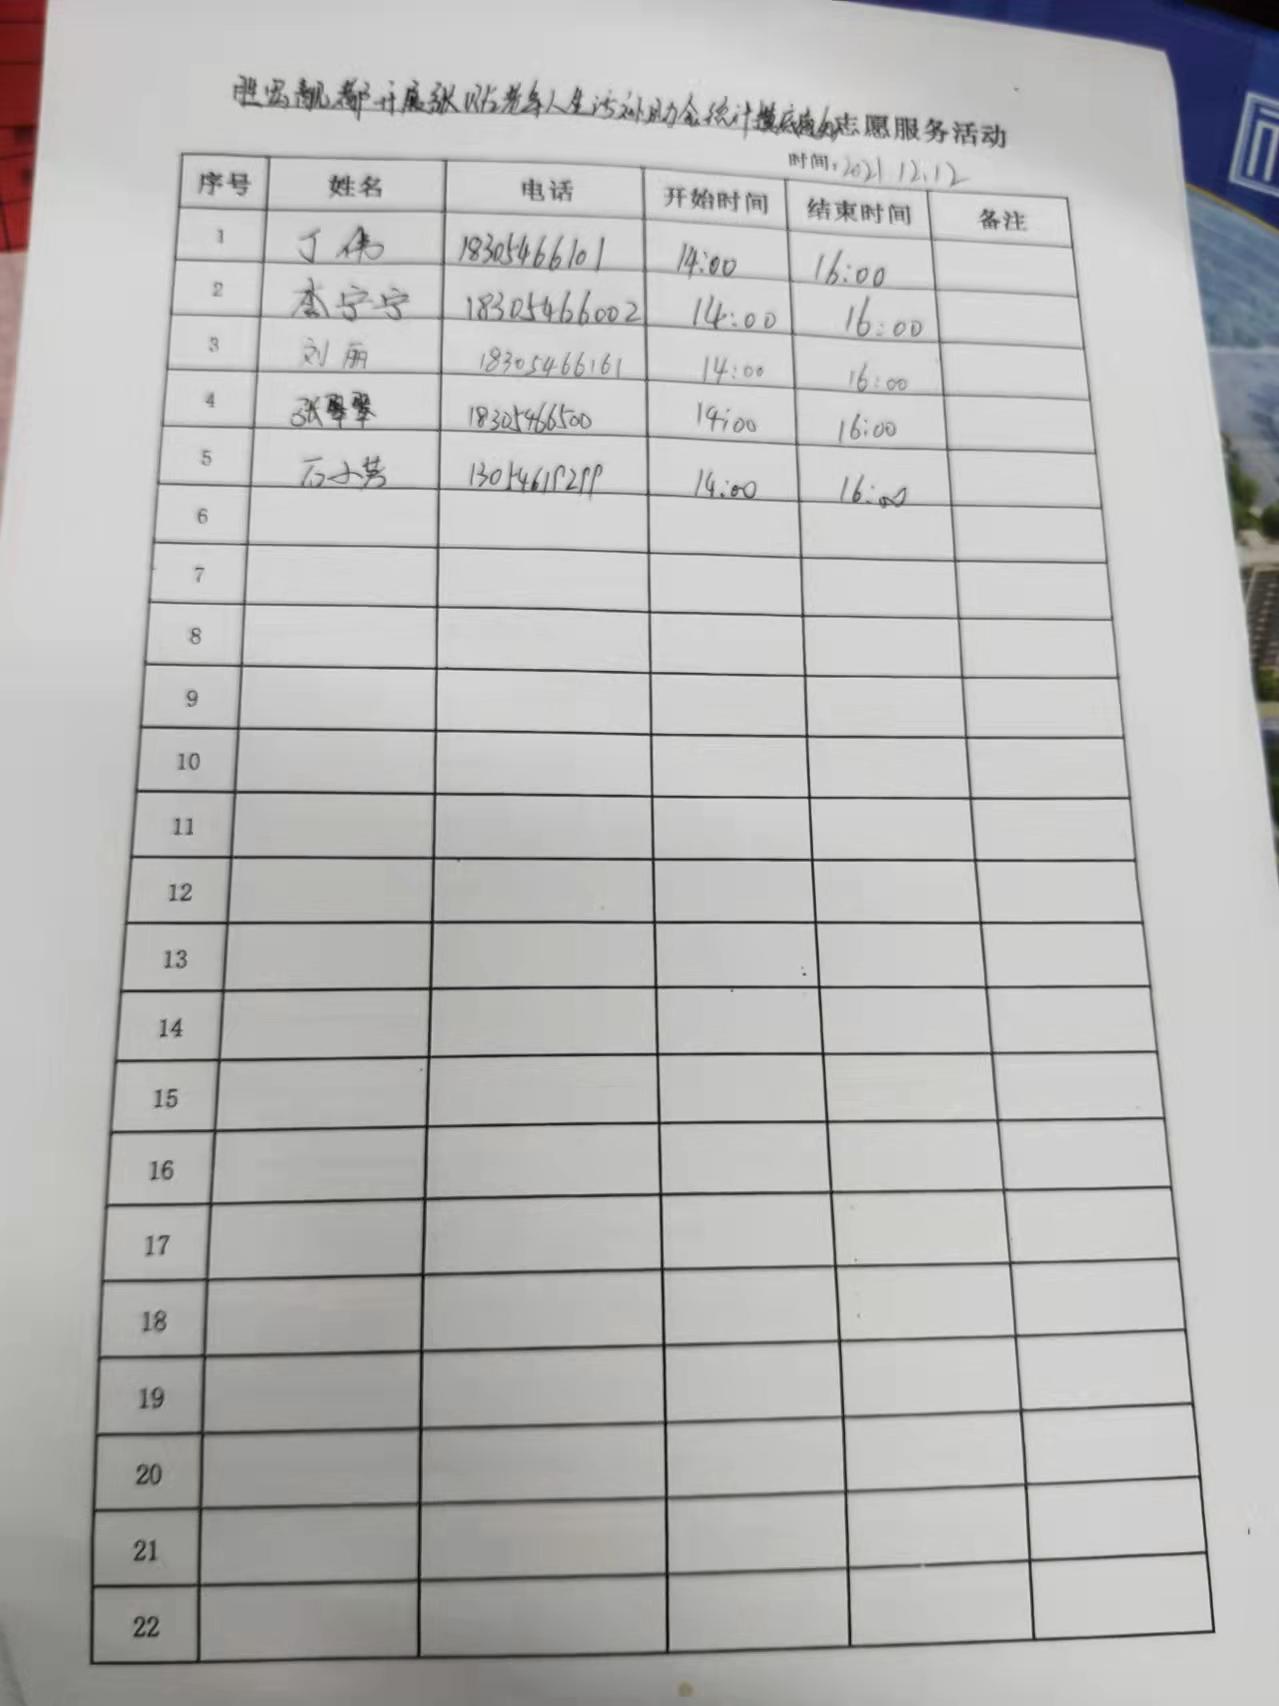 胜宏靓都开展张贴老年人生活补助金统计摸底的志愿服务活动
时间:2021.12.12
序号 姓名 电话 开始时间 结束时间 备注
1 丁伟 18305466101 14:00 16:00
2 李宁宁 18305466002 14:00 16:00
3 刘丽 18305466161 14:00 16:00
4 张翠翠 18305466500 14:00 16:00
5 石小芳 14:00 16:00
6
7
8
9
10
11
12
13
14
15
16
17
18
19
20
21
22